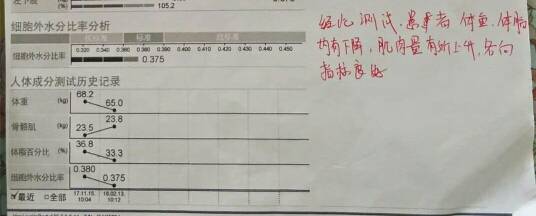 左下肢
105.2
细胞外水分比率分析
低标准 标准 超标准
0.320 0.340 0.360 0.380 0.390 0.400 0.410 0.420 0.430 0.440 0.450
细胞外水分比率 0.375
人体成分测试历史记录
体重 (kg) 68.2 65.0
骨骼肌 (kg) 23.5 23.8
体脂百分比 (%) 36.8 33.3
细胞外水分比率 0.380 0.375
最近 全部 17.11.15. 10:04 18.02.13. 10:12
经过测试,患者体重,体脂
均有下降,肌肉量有所上升,各项
指标良好